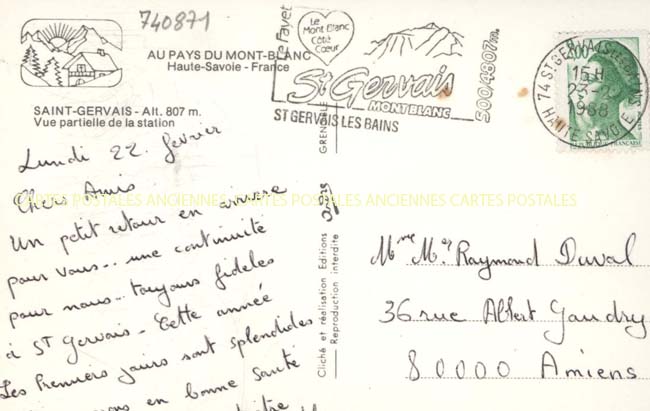 740871
AU PAYS DU MONT-BLANC
Haute-Savoie - France
SAINT-GERVAIS - Alt. 807 m.
Vue partielle de la station
Le Fayet
Le
Mont Blanc
Côté
Cœur
St Gervais
MONT BLANC
900/4807m.
ST GERVAIS LES BAINS
74 ST GERVAIS LES BAINS
15H
23-2
1988
HAUTE SAVOIE
Lundi 22 février
Chers Amis
Un petit retour en arrière
pour vous.. une continuité
pour nous.. toujours fidèles
à St Gervais - Cette année
Les Premiers jours sont splendides
en bonne santé
CARTES POSTALES ANCIENNES CARTES POSTALES ANCIENNES CARTES POSTALES
Cliché et réalisation Editions
Reproduction interdite
Mme Mr Raymond Duval
36 rue Albert Gaudry
80000
Amiens